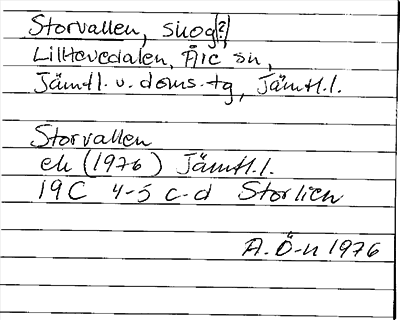 Storvallen, skog(?)
Lilltevedalen, Åre sn,
Jämtl. v. doms. tg, Jämtl. l.
Storvallen
ek (1976) Jämtl. l.
19C 4-5 c-d Storlien
A. Ö-n 1976